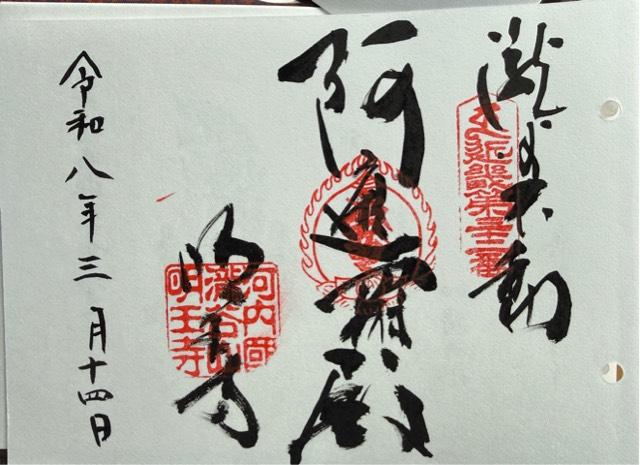 瀧谷不動
近畿第卅三番
阿遮羅殿
明王寺
河内國
瀧谷山
明王寺
令和八年三月十四日